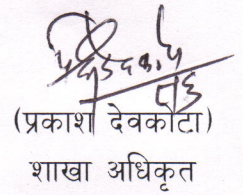 (प्रकाश देवकोटा)
शाखा अधिकृत